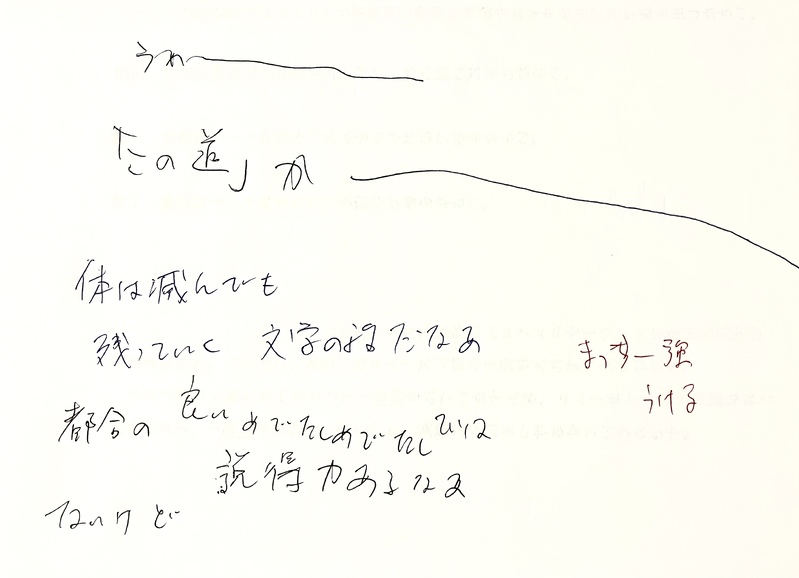 うわ
「この道」か
体は滅んでも
残っていく 文字の様だなあ
都合の良いめでたしめでたしびいは
説得力あるなあ
ないけど
まっすー強
うける